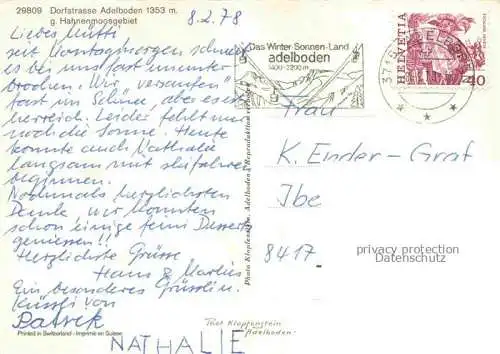 29809 Dorfstrasse Adelboden 1353 m.
g. Hahnenmoosgebiet
8.2.78
Liebes Mutti
seit Sonntagmorgen schneit
es bei uns fast ununter-
brochen. Wir "versaufen"
fast im Schnee, aber es ist
herrlich. Leider fehlt uns
noch die Sonne. Heute
konnte auch Nathalie
langsam mit skifahren
beginnen.
Nochmals herzlichsten
Dank, wir konnten
schon einige feine Dessert
geniessen!!
Herzlichste Grüsse
Hans & Marlies
Ein besonderes Grüsslein.
Küssli von
Patrik
NATHALIE
Printed in Switzerland - Imprimé en Suisse
Das Winter-Sonnen-Land
adelboden
1400-2200 m
3715 ADELBODEN
HELVETIA
40
Photo Klopfenstein, Adelboden Reproduktion verboten
Frau
K. Ender-Graf
Ibe
8417
privacy protection
Watermark
Phot Klopfenstein
Adelboden